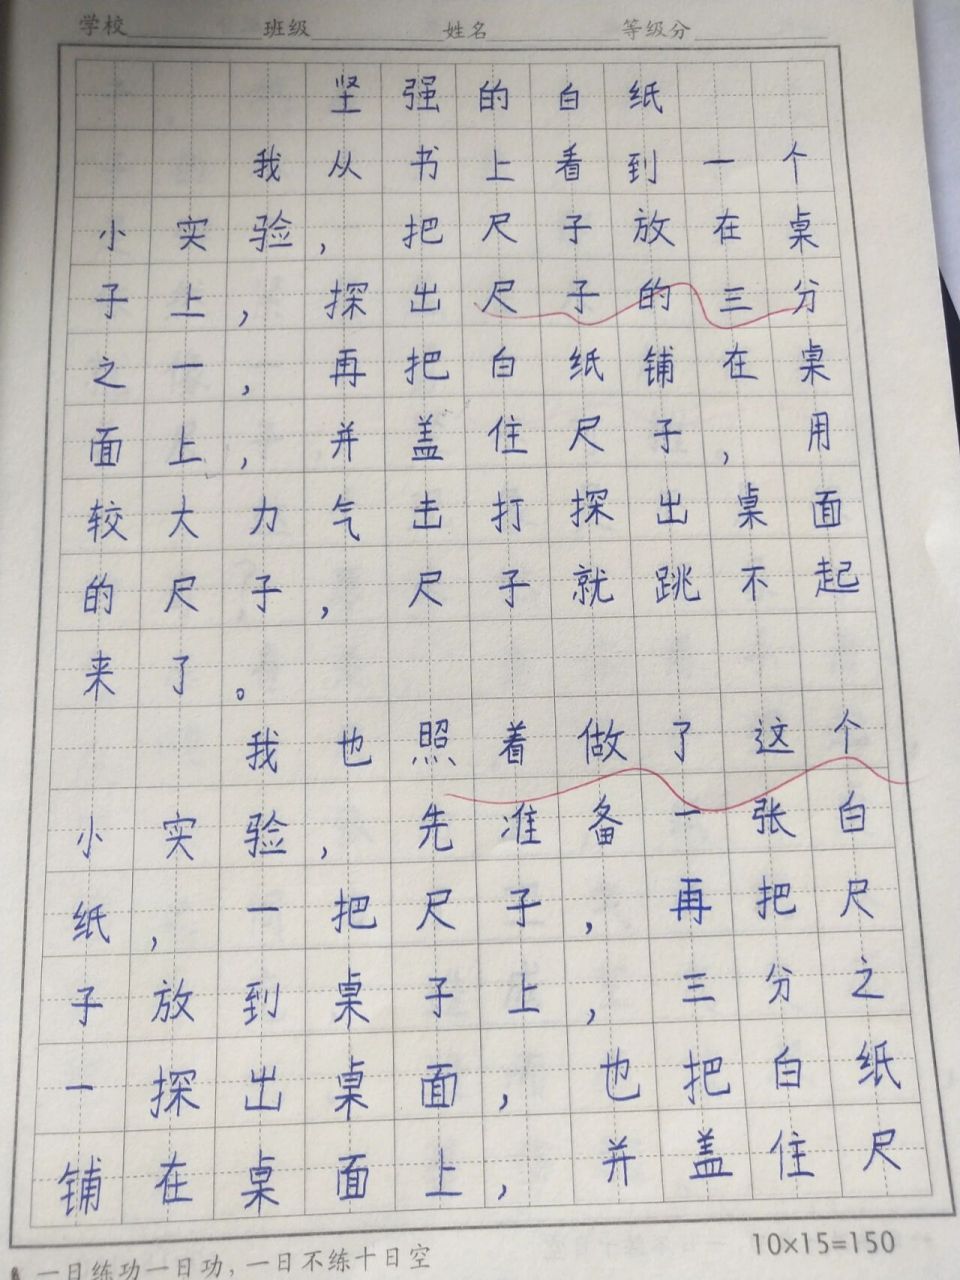 学校 班级 姓名 等级分
坚强的白纸
我从书上看到一个
小实验，把尺子放在桌
子上，探出尺子的三分
之一，再把白纸铺在桌
面上，并盖住尺子，用
较大力气击打探出桌面
的尺子，尺子就跳不起
来了。
我也照着做了这个
小实验，先准备一张白
纸，一把尺子，再把尺
子放到桌子上，三分之
一探出桌面，也把白纸
铺在桌面上，并盖住尺
10×15=150
一日练功一日功，一日不练十日空